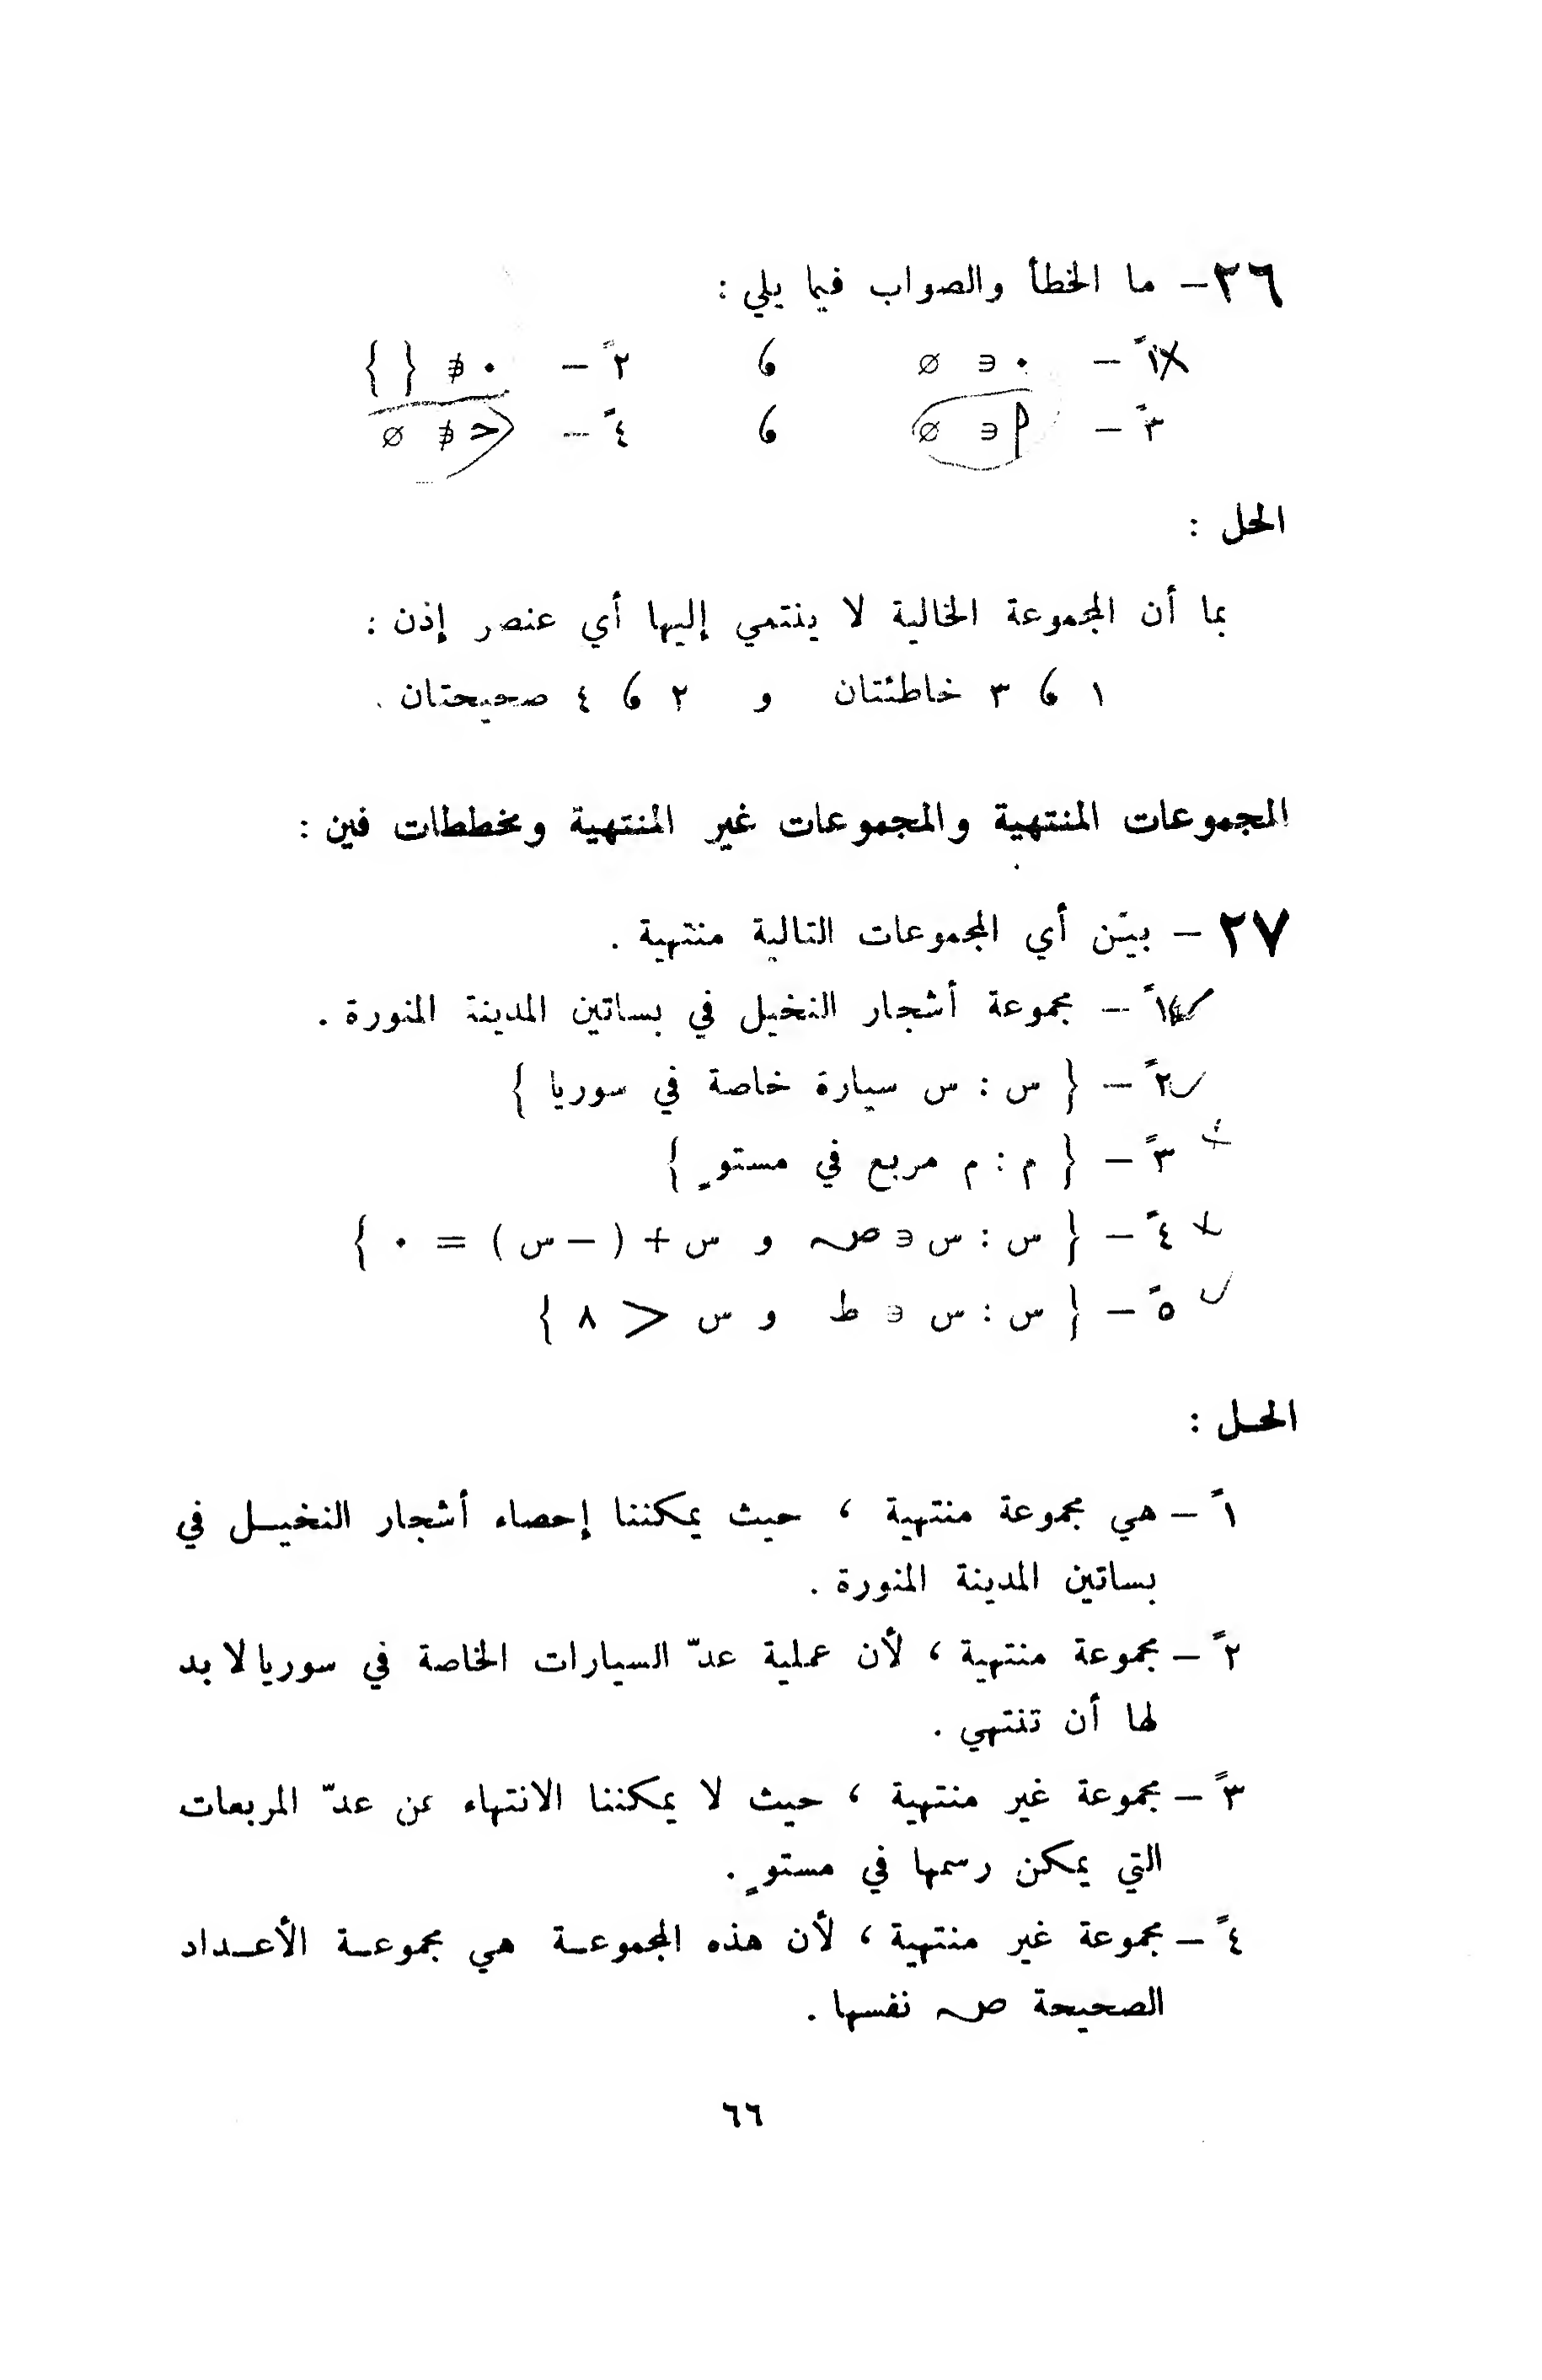 ٢٦ – ما الخطأ والصواب فيما يلي :
١ً – ٠ ∍ ∅ ، ٢ً – ٠ ∌ { }
٣ً – ∍ ∅ ، ٤ً – حـ ∌ ∅
الحل :
بما أن المجموعة الخالية لا ينتمي إليها أي عنصر إذن :
١ ، ٣ خاطئتان و ٢ ، ٤ صحيحتان .
المجموعات المنتهية والمجموعات غير المنتهية ومخططات فين :
٢٧ – بيّن أي المجموعات التالية منتهية .
١ً – مجموعة أشجار النخيل في بساتين المدينة المنورة .
٢ً – { س : س سيارة خاصة في سوريا }
٣ً – { م : م مربع في مستوٍ }
٤ً – { س : س ∍ صـ و س + ( – س ) = ٠ }
٥ً – { س : س ∍ ط و س > ٨ }
الحـل :
١ً – هي مجموعة منتهية ، حيث يمكننا إحصاء أشجار النخيــل في
بساتين المدينة المنورة .
٢ً – مجموعة منتهية ، لأن عملية عدّ السيارات الخاصة في سوريا لا بد
لها أن تنتهي .
٣ً – مجموعة غير منتهية ، حيث لا يمكننا الانتهاء من عدّ المربعات
التي يمكن رسمها في مستوٍ .
٤ً – مجموعة غير منتهية ، لأن هذه المجموعـة هي مجموعـة الأعـداد
الصحيحة صـ نفسها .
٦٦